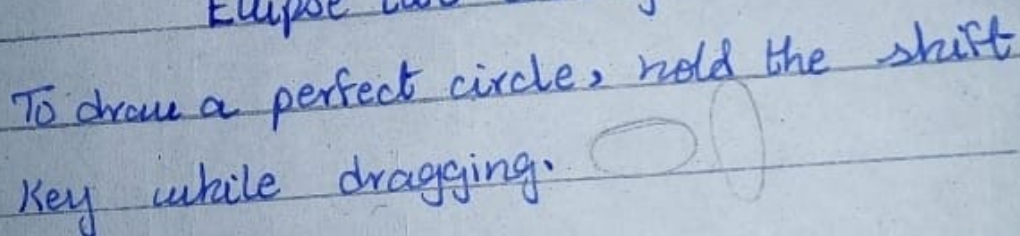 Ellipse
To draw a perfect circle, hold the shift
Key while dragging.